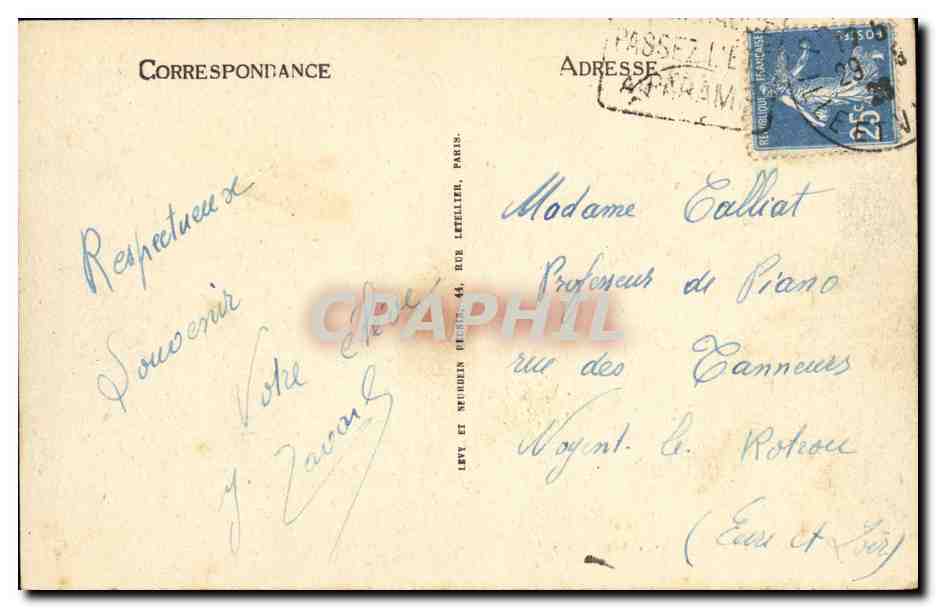 CORRESPONDANCE
ADRESSE
PASSEZ L'É
A PARAM
RÉPUBLIQUE FRANÇAISE
POSTES
25c
29
Respectueux
Souvenir
Votre élève
J.
LÉVY ET NEURDEIN RÉUNIS, 44, RUE LETELLIER, PARIS.
Madame Talliat
Professeur de Piano
rue des Tanneurs
Nogent-le-Rotrou
(Eure et Loir)
CPAPHIL